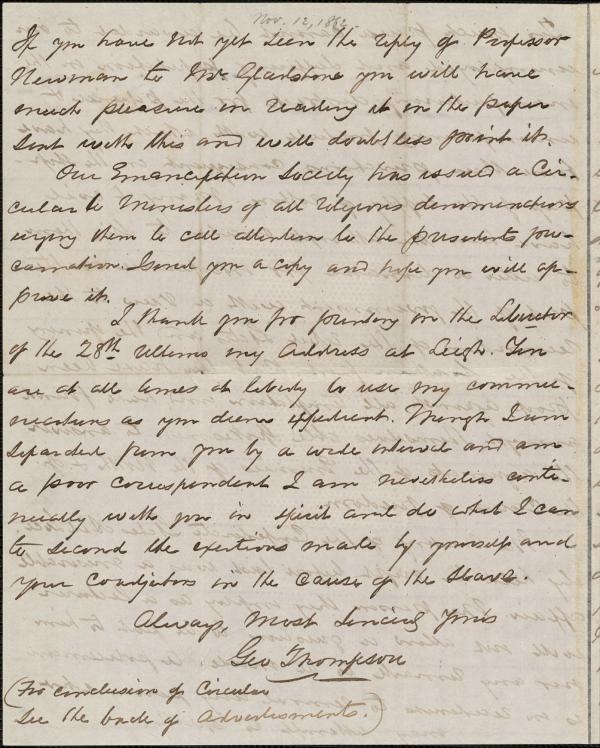 Nov. 12, 1862
If you have not yet seen the reply of Professor
Newman to Mr Gladstone you will have
much pleasure in reading it in the paper
sent with this and will doubtless print it.
Our Emancipation Society has issued a Cir-
cular to Ministers of all religious denominations
urging them to call attention to the presidents pro-
camation. I send you a copy and hope you will ap-
prove it.
I thank you for printing in the Liberator
of the 28th Ultimo my Address at Leigh. You
are at all times at liberty to use my commu-
nications as you deem expedient. Though I am
separated from you by a wide interval and am
a poor correspondent I am nevertheless conti-
nually with you in spirit and do what I can
to second the exertions made by yourself and
your Coadjutors in the cause of the Slave.
Always, Most Sincerely Yours
Geo Thompson
(For conclusion of Circular
see the back of Advertisments.)